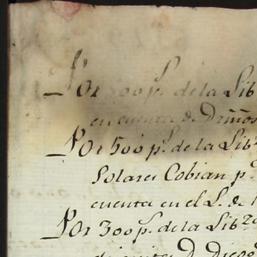 Por 300 p.s de la Lib
en cuenta de D
Por 500 p.s de la Lib.za
Solares Cobian p.
cuenta en el L. de
Por 300 p.s de la Lib.za
de cuenta D. Diego